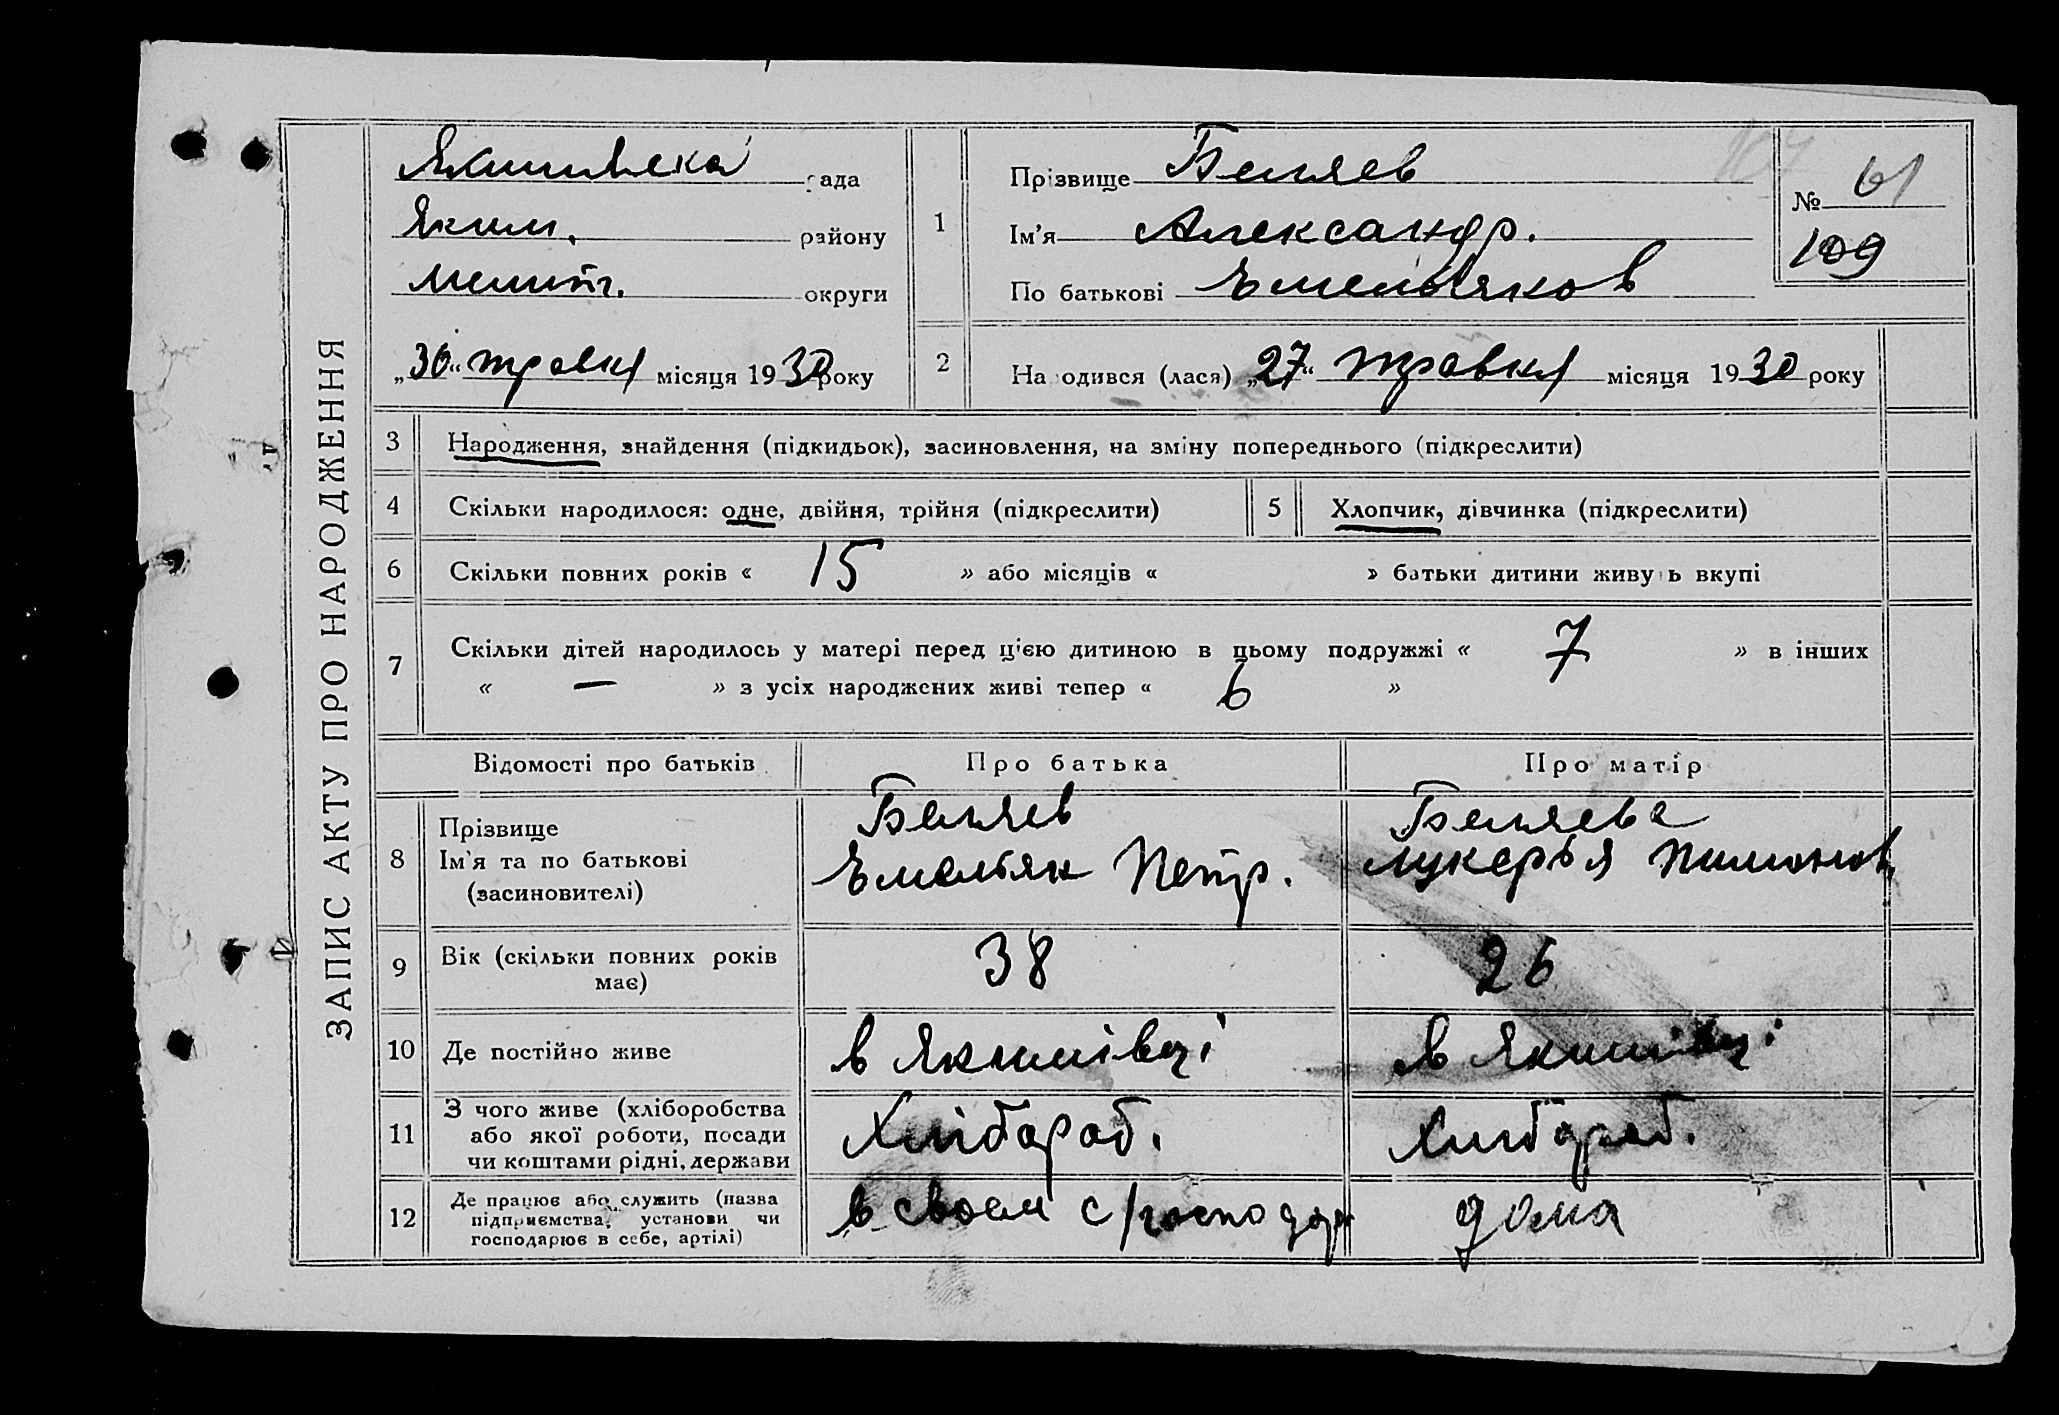 ЗАПИС АКТУ ПРО НАРОДЖЕННЯ
Якимівська рада
Яким. району
Меліт. округи
„30“ травня місяця 1930 року
1
Прізвище Беляев
Ім'я Александр.
По батькові Емельянов
№ 61
109
107
2
На одився (лася) „27“ травня місяця 1930 року
3 Народження, знайдення (підкидьок), засиновлення, на зміну попереднього (підкреслити)
4 Скільки народилося: одне, двійня, трійня (підкреслити)
5 Хлопчик, дівчинка (підкреслити)
6 Скільки повних років « 15 » або місяців « » батьки дитини живу ь вкупі
7 Скільки дітей народилось у матері перед ц'єю дитиною в цьому подружжі « 7 » в інших
« — » з усіх народжених живі тепер « 6 »
Відомості про батьків Про батька Про матір
8 Прізвище
Ім'я та по батькові
(засиновителі)
Беляев
Емельян Петр.
Беляева
Лукерья Пимонов.
9 Вік (скільки повних років
має)
38
26
10 Де постійно живе
в Якимівці
в Якимівці
11 З чого живе (хліборобства
або якої роботи, посади
чи коштами рідні, держави
Хлібороб.
Хлібороб.
12 Де працює або служить (назва
підприємства, установи чи
господарює в себе, артілі)
в своем с/господар
дома